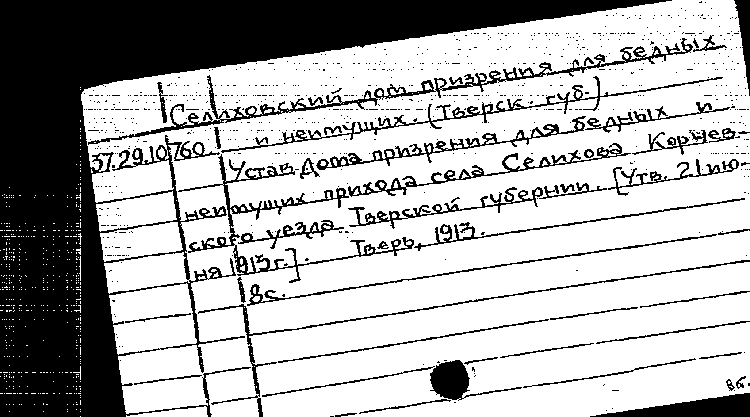 Селиховский дом призрения для бедных
и неимущих. (Тверск. губ.).
37.29.10760.
Устав Дома призрения для бедных и
неимущих прихода села Селихова Корчев-
ского уезда Тверской губернии. [Утв. 21 ию-
ня 1913 г.]. Тверь, 1913.
8 с.
вб.